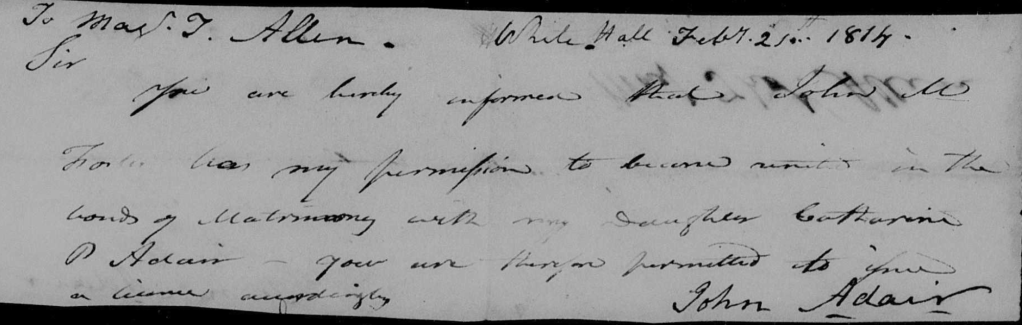 To Maj. T. Allen. White Hall Feby. 21st. 1814.
Sir
You are hereby informed that John M
Foster has my permission to become united in the
bonds of Matrimony with my daughter Catharine
P Adair - you are therefore permitted to issue
a licence accordingly
John Adair